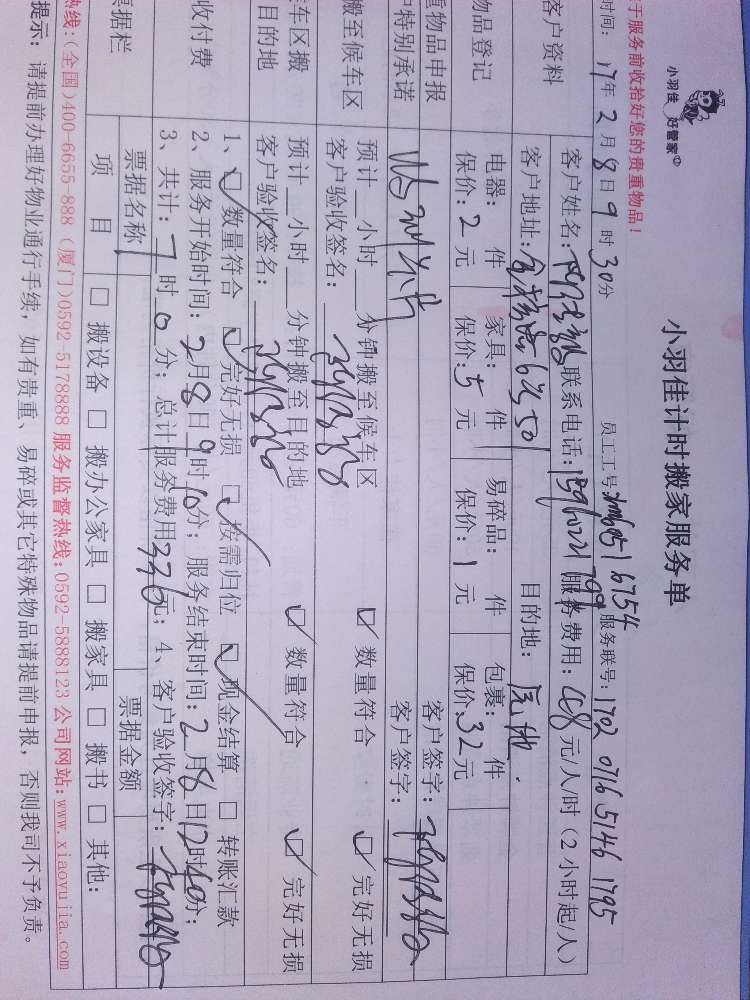 小羽佳 好管家
小羽佳计时搬家服务单
于服务前收拾好您的贵重物品！
时间：17年2月8日9时30分 员工工号：xm6851 6754 服务联号：1702 0716 5146 1795
客户资料 客户姓名： 联系电话： 服务费用：48元/人/时（2小时起/人）
客户地址： 目的地：原地.
物品登记 电器： 件 家具： 件 易碎品： 件 包裹： 件
保价：2元 保价：5元 保价：1元 保价：32元
重物品申报 客户签字：
特别承诺 客户签字：
搬至候车区 预计__小时__分钟搬至候车区 ☑数量符合 ☑完好无损
客户验收签名：
车区搬 预计__小时__分钟搬至目的地 ☑数量符合 ☑完好无损
目的地 客户验收签名：
收付费 1、☑数量符合 ☑完好无损 ☑按需归位 ☑现金结算 □转账汇款
2、服务开始时间：2月8日9时10分；服务结束时间：2月8日12时40分；
3、共计：7时0分；总计服务费用336元；4、客户验收签字：
票据栏 票据名称 票据金额
项目 □搬设备 □搬办公家具 □搬家具 □搬书 □其他：
热线：(全国)400-6655-888 (厦门)0592-5178888 服务监督热线：0592-5888123 公司网站：www.xiaoyujia.com
提示：请提前办理好物业通行手续，如有贵重、易碎或其它特殊物品请提前申报，否则我司不予负责。